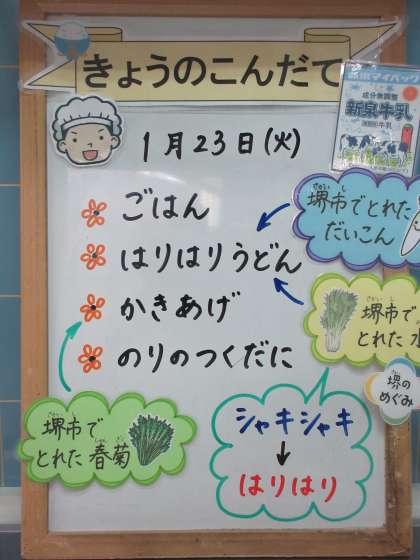 きょうのこんだて
1月23日(火)
成分無調整
新泉牛乳
ごはん
はりはりうどん
かきあげ
のりのつくだに
さかい し
堺市でとれた
だいこん
さかい し
堺市で
とれた 水
堺の
めぐみ
さかい し
堺市で
とれた 春菊
シャキシャキ
↓
はりはり